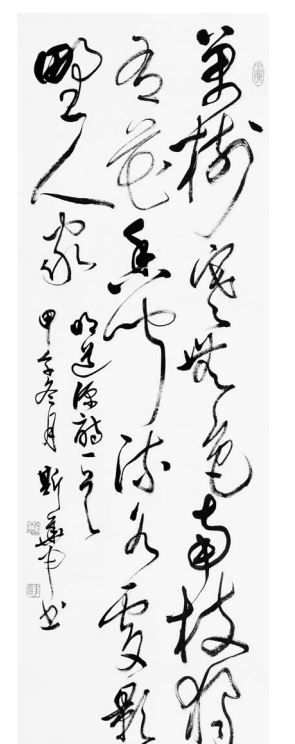 萬樹寒無色南枝獨
有花香聞流水處影
野人家
明道源詩一首
甲午冬月斯華书